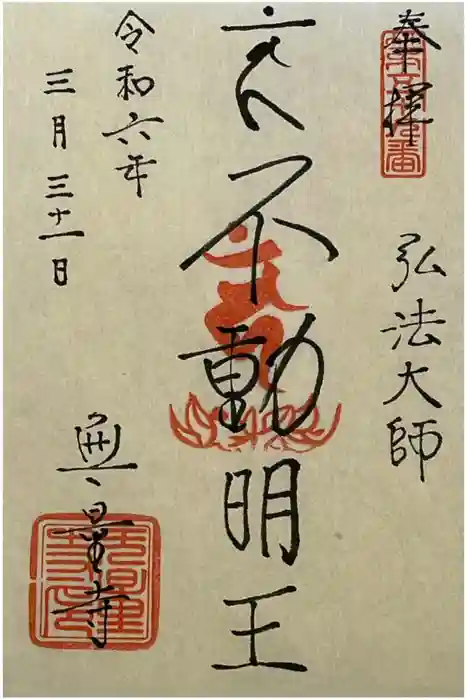 奉拝
弘法大師
不動明王
令和六年
三月三十一日
無量寺